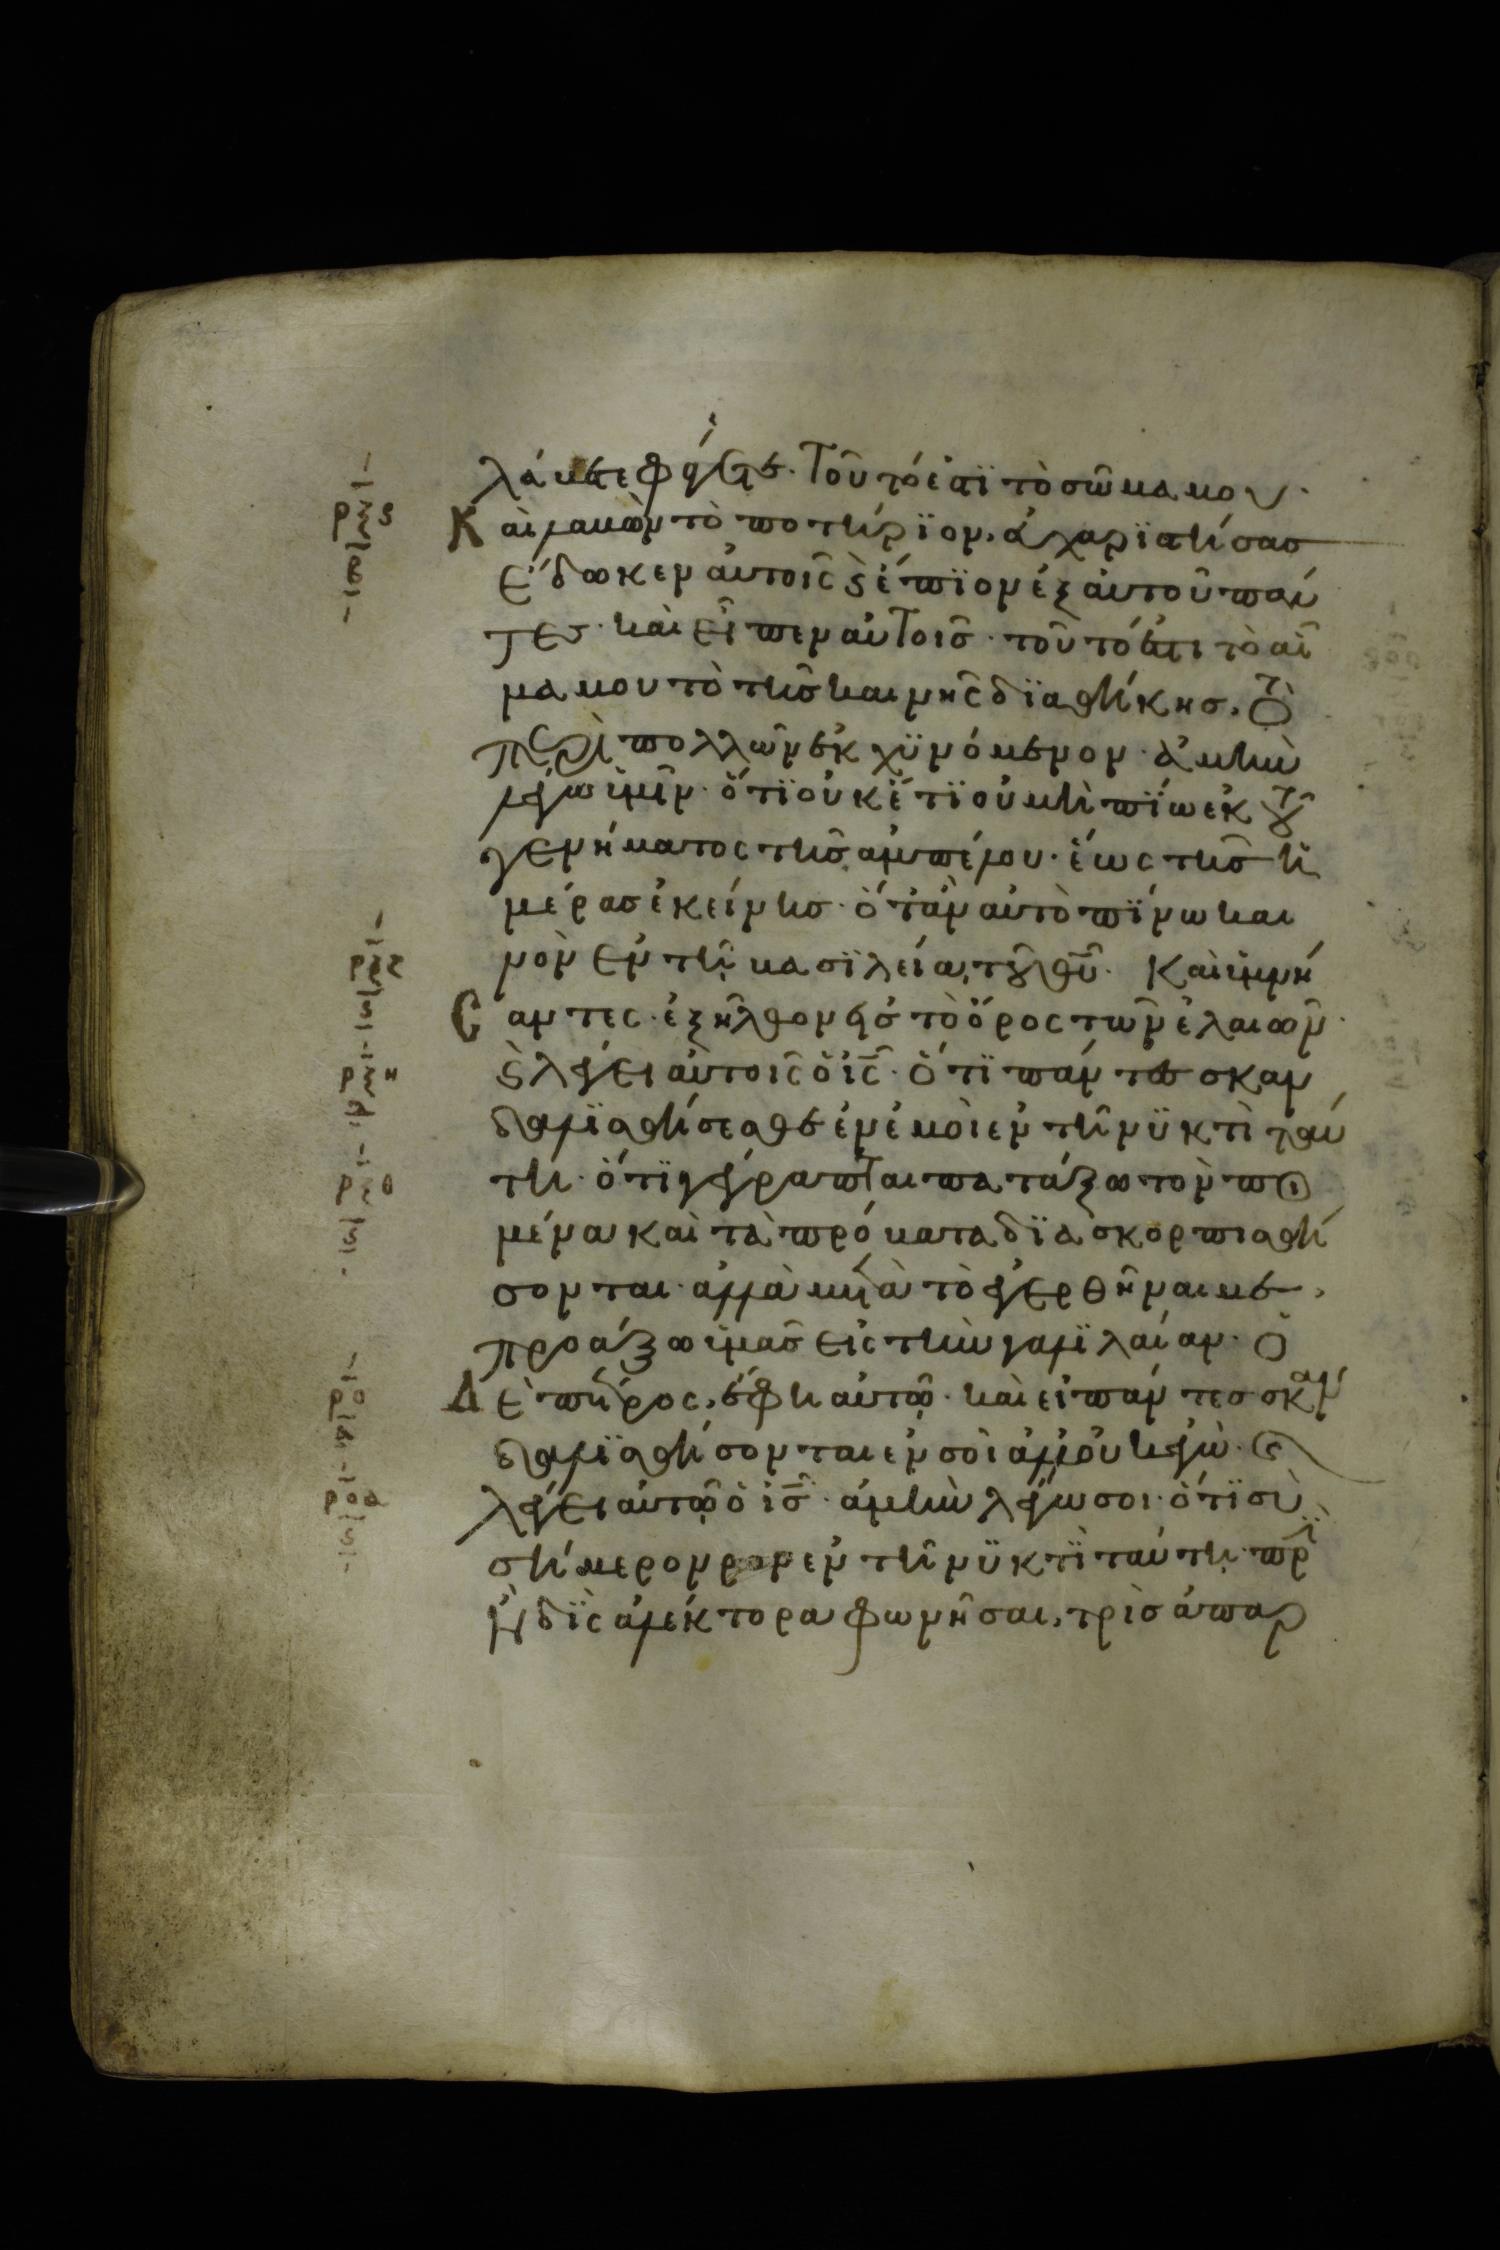 λάβετε φάγετε· Τοῦτό ἐστϊ τὸ σῶμα μου·
ρξς
β
Καὶ λαβὼν τὸ ποτήρϊον, εὐχαρϊστήσασ
ἔδωκεν αὐτοῖς ϗ ἔπϊον ἐξ αὐτοῦ πάν
τεσ· καὶ εἶπεν αὐτοῖσ· τοῦτό ἐστι τὸ αἷ
μα μου τὸ τῆσ καινῆς δϊαθήκησ, τὸ
περὶ πολλῶν ἐκχϋνόμενον· ἀμὴν
λέγω ὑμῖν· ὅτϊ οὐκέτϊ οὐ μὴ πΐω ἐκ τοῦ
γενήματος τῆσ ἀμπέλου· ἕως τῆσ ἡ
μέρασ ἐκείνησ· ὅταν αὐτὸ πΐνω και
νὸν ἐν τῆ βασϊλεία τοῦ θῡ· Καὶ ὑμνή
ρξζ
ς
Σαντες· ἐξῆλθον εἰσ τὸ ὄρος τῶν ἐλαιῶν·
ρξη
δ
ϗ λέγει αὐτοῖς ὁ ις̄· Ὅτϊ πάντεσ σκαν
δαλϊσθήσεσθε ἐν ἐμοὶ ἐν τῆ νϋκτὶ ταύ
τη· ὅτϊ γέγραπται πατάξω τὸν ποι
ρξθ
ς
μένα καὶ τὰ πρόβατα δϊασκορπισθή
σονται· ἀλλὰ μετὰ τὸ ἐγερθῆναι με,
προάξω ὑμᾶσ εἰς τὴν γαλϊλαίαν· Ὁ
ρο
α
Δὲ πέτρος, ἔφη αὐτῶ· καὶ εἰ πάντεσ σκαν
δαλϊσθήσονται ἐν σοὶ ἀλλ' οὐκ ἐγώ· ϗ
ροα
ς
λέγει αὐτῶ ὁ ισ̄· ἀμὴν λέγω σοι· ὅτϊ σὺ
σήμερον ἐν τῆ νϋκτϊ ταύτη, πρὶν
ἢ δϊς ἀλέκτορα φωνῆσαι, τρὶσ ἀπαρ